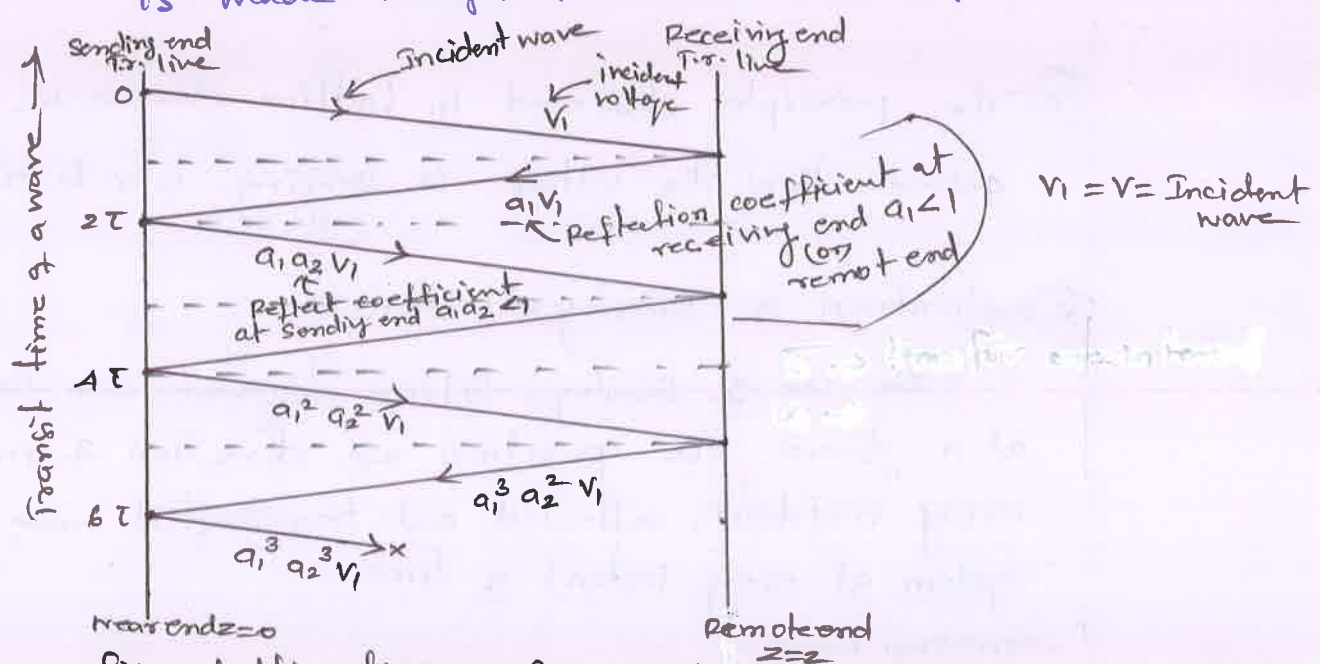 Sending end
T.r. live
Incident wave
Receiving end
T.r. live
incident
voltage
V1
0
a1V1
Reflection coefficient at
receiving end a1<1
(or)
remot end
V1 = V = Incident
wave
2τ
a1 a2 V1
Reflect coefficient
at Sendiy end a1a2 <1
4τ
a1² a2² V1
a1³ a2² V1
6τ
a1³ a2³ V1
x
Near end z=0
Remote end
z=z